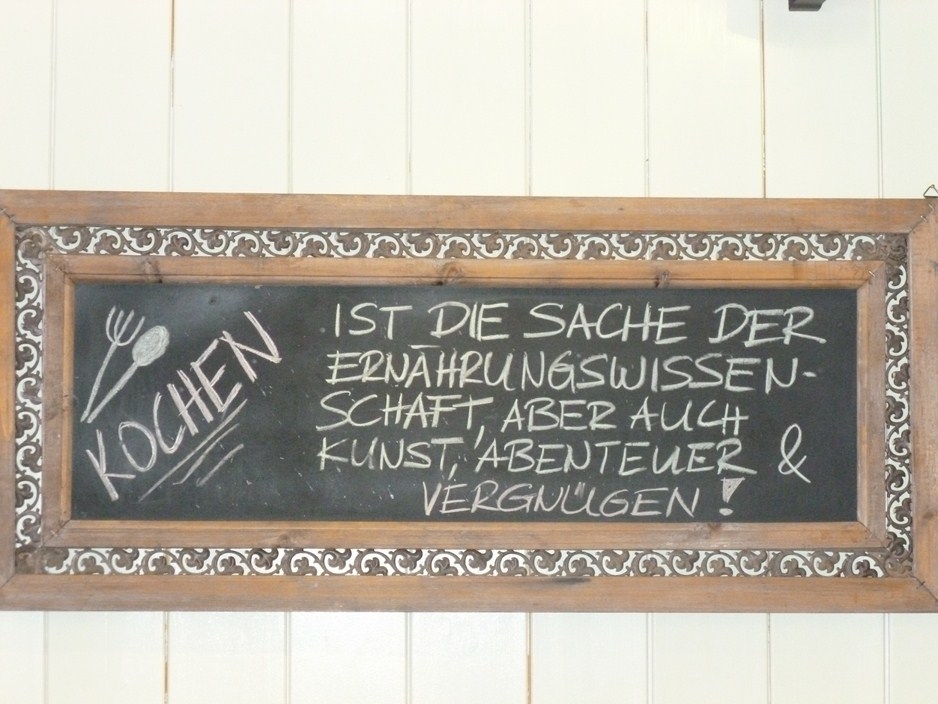 KOCHEN
IST DIE SACHE DER
ERNÄHRUNGSWISSEN-
SCHAFT, ABER AUCH
KUNST, ABENTEUER &
VERGNÜGEN!